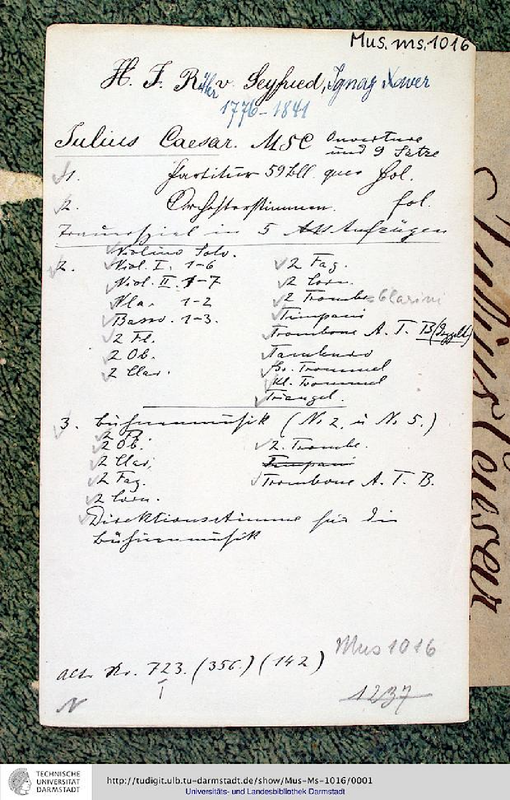 Mus. ms. 1016
H. J. Ritter v. Seyfried, Ignaz Xaver
1776-1841
Julius Caesar. MSC Ouverture und 9 Sätze
1. Partitur 59 Bll. quer fol.
2. Orchesterstimmen. fol.
Trauerspiel in 5 Aufzügen
Violino Solo.
2. Viol. I. 1-6
Viol. II. 1-7
Vla. 1-2
Basso. 1-3.
2 Fl.
2 Ob.
2 Clar.
2 Fag.
2 Corn.
2 Trombe = Clarini
Timpani
Trombone A. T. B
Tamburo
Gr. Trommel
Kl. Trommel
Triangel.
3. Bühnenmusik (No 2. u No 5.)
2 Fl.
2 Ob.
2 Clar.
2 Fag.
2 Corn.
2. Trombe.
Timpani
Trombone A. T. B.
Direktionsstimme für die
Bühnenmusik
alte Nr. 723. (356.) (142)
Mus 1016
1237
N
Julius Caesar
TECHNISCHE
UNIVERSITÄT
DARMSTADT
http://tudigit.ulb.tu-darmstadt.de/show/Mus-Ms-1016/0001
Universitäts- und Landesbibliothek Darmstadt